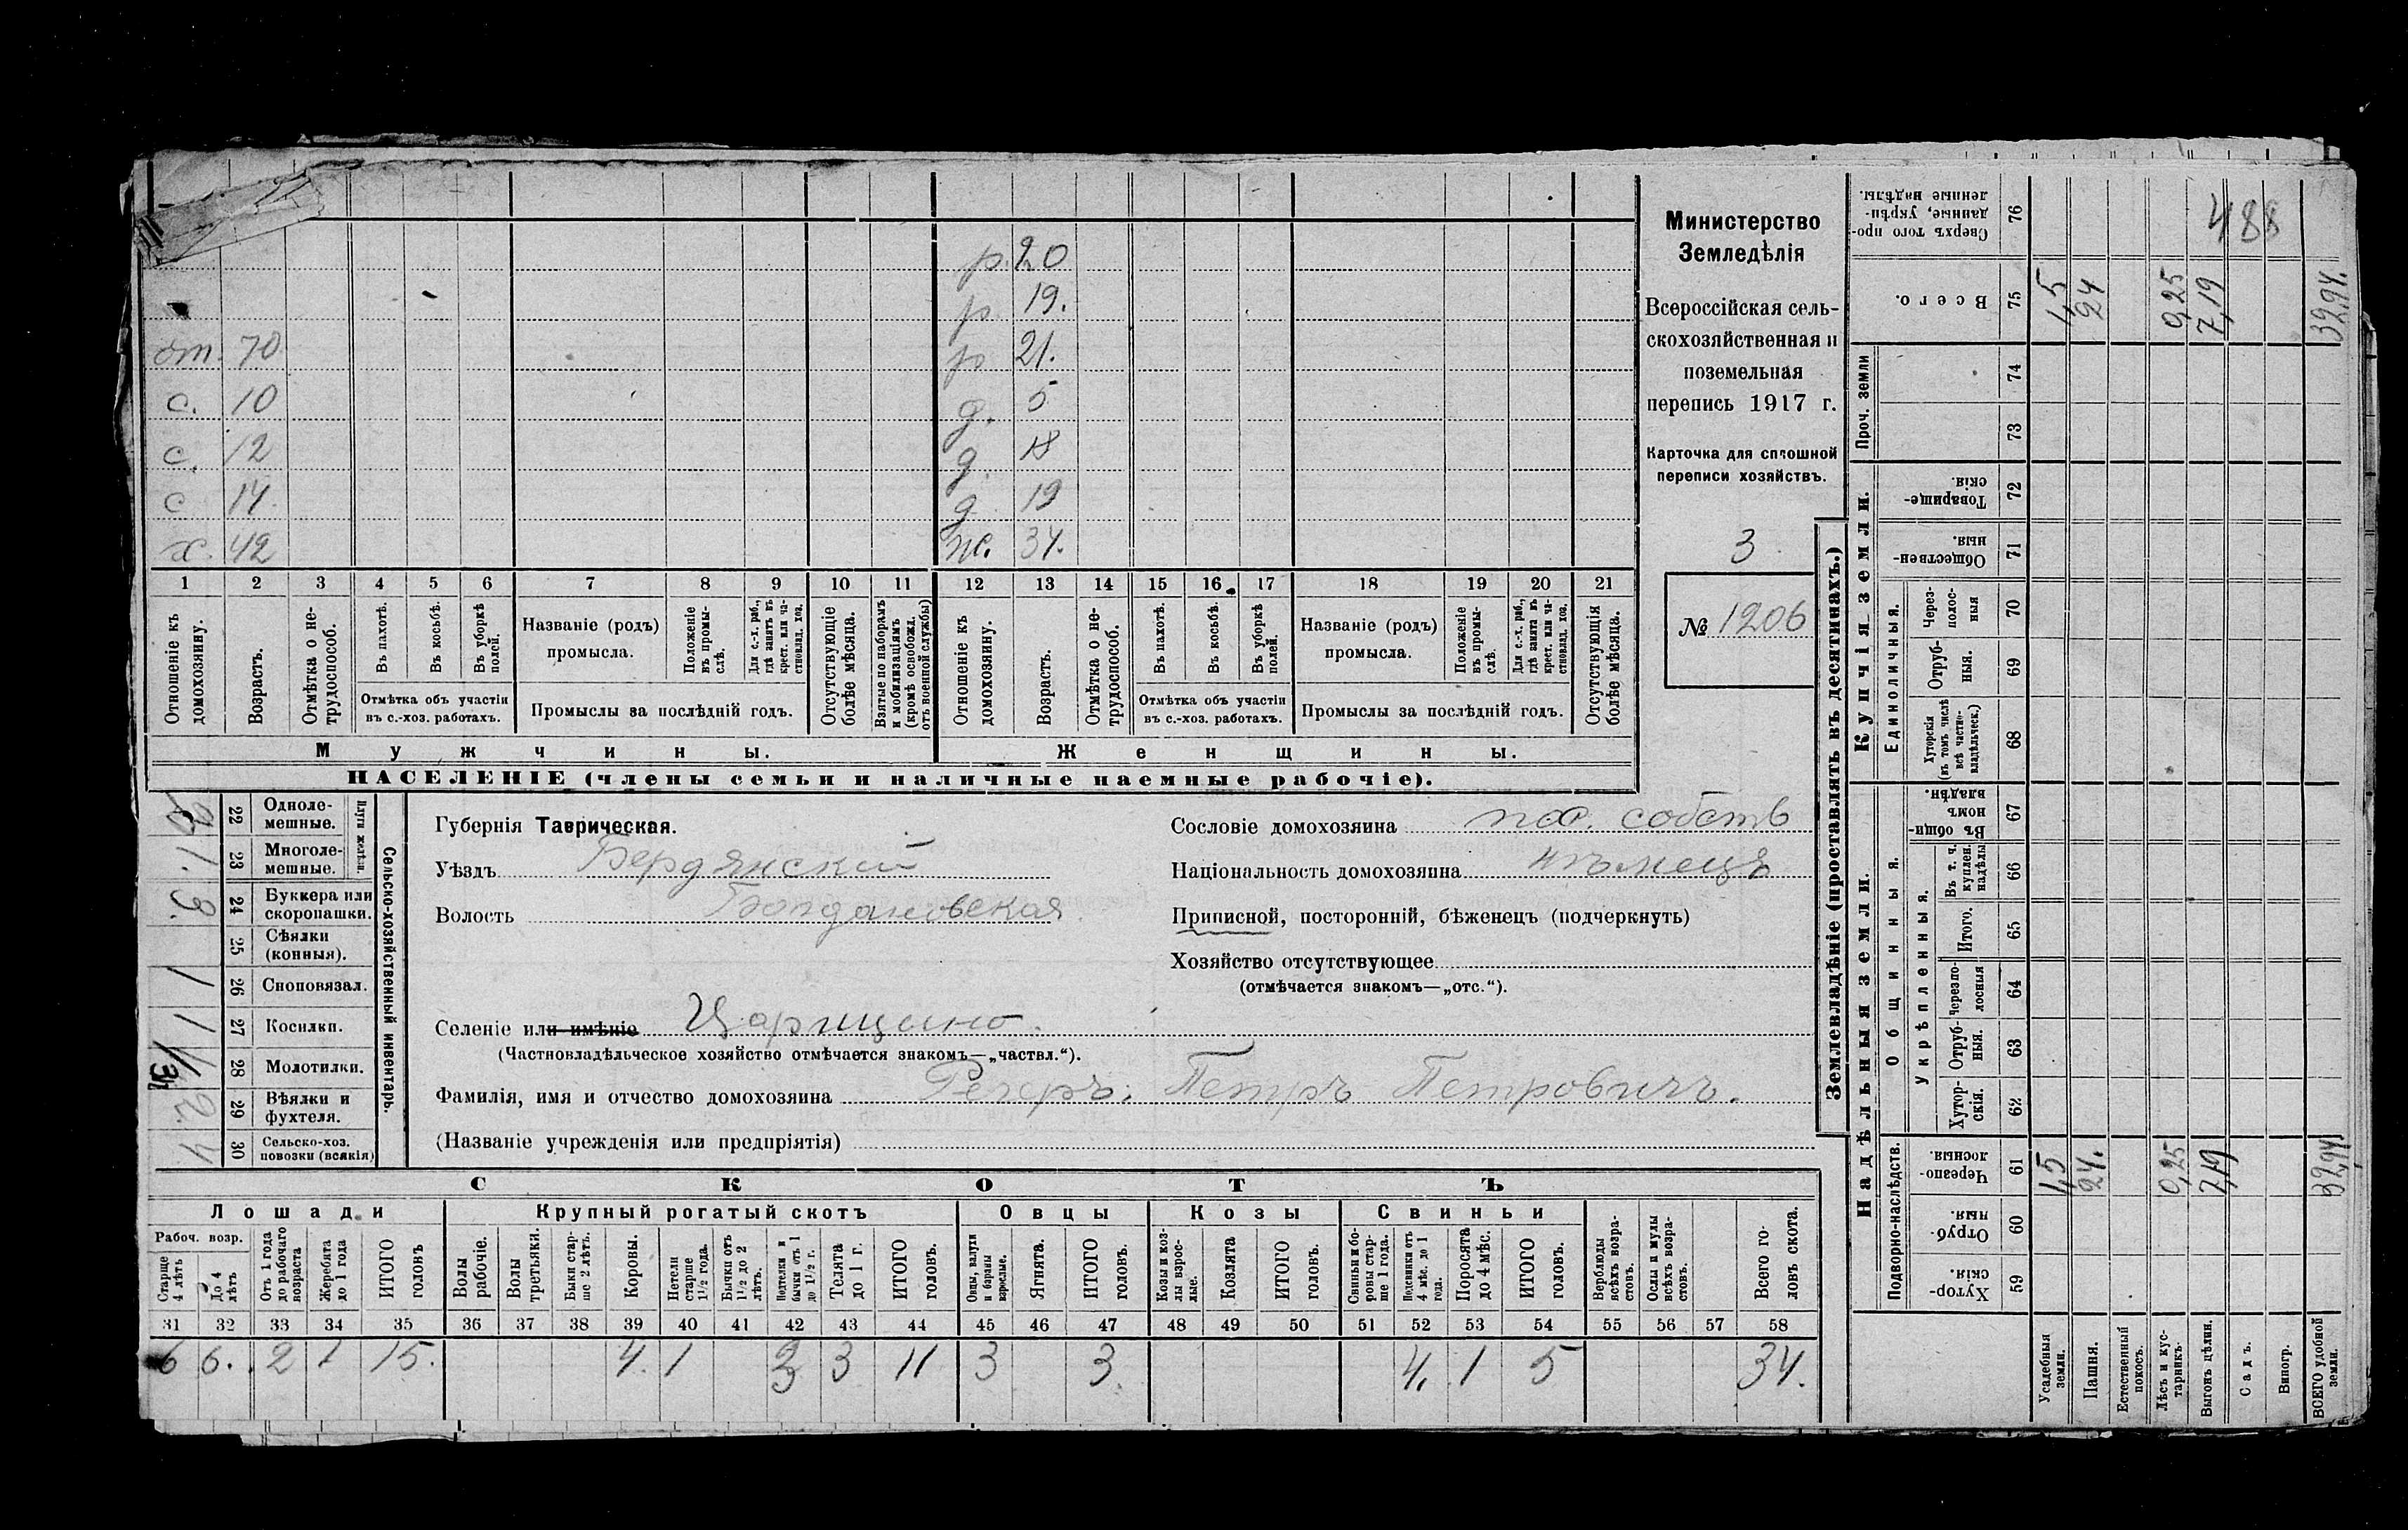 р. 20
р. 19.
от. 70 р 21.
с. 10 д. 5
с. 12 д. 18
с 14 д 19
х. 42 ж. 34.
1 2 3 4 5 6 7 8 9 10 11 12 13 14 15 16 17 18 19 20 21
Отношеніе къ домохозяину.
Возрастъ.
Отмѣтка о нетрудоспособ.
Въ пахотѣ.
Въ косьбѣ.
Въ уборкѣ полей.
Отмѣтка объ участіи въ с.-хоз. работахъ.
Названіе (родъ) промысла.
Положеніе въ промыслѣ.
Для с.-х. раб., гдѣ занятъ въ крест. или частновлад. хоз.
Промыслы за послѣдній годъ.
Отсутствующіе болѣе мѣсяца.
Взятые по наборамъ и мобилизаціямъ (кромѣ освобожд. отъ военной службы)
Отношеніе къ домохозяину.
Возрастъ.
Отмѣтка о нетрудоспособ.
Въ пахотѣ.
Въ косьбѣ.
Въ уборкѣ полей.
Отмѣтка объ участіи въ с.-хоз. работахъ.
Названіе (родъ) промысла.
Положеніе въ промыслѣ.
Для с.-х. раб., гдѣ занята въ крест. или частновлад. хоз.
Промыслы за послѣдній годъ.
Отсутствующія болѣе мѣсяца.
Мужчины. Женщины.
НАСЕЛЕНІЕ (члены семьи и наличные наемные рабочіе).
Министерство
Земледѣлія
Всероссійская сель-
скохозяйственная и
поземельная
перепись 1917 г.
Карточка для сплошной
переписи хозяйствъ.
3
№ 1206
Плуги желѣзн.
22 Одноле-
мешные.
1. 23 Многоле-
мешные.
3. 24 Буккера или
скоропашки.
25 Сѣялки
(конныя).
1 26 Сноповязал.
1 27 Косилки.
28 Молотилки.
2. 29 Вѣялки и
фухтеля.
4 30 Сельско-хоз.
повозки (всякія)
Сельско-хозяйственный инвентарь.
Губернія Таврическая.
Уѣздъ Бердянскій
Волость Богдановская
Селеніе или имѣніе Царицино.
(Частновладѣльческое хозяйство отмѣчается знакомъ—„частвл.“).
Фамилія, имя и отчество домохозяина Регеръ. Петръ Петровичъ.
(Названіе учрежденія или предпріятія)
Сословіе домохозяина пос. собств
Національность домохозяина нѣмецъ
Приписной, посторонній, бѣженецъ (подчеркнуть)
Хозяйство отсутствующее
(отмѣчается знакомъ—„отс.“).
СКОТЪ
Лошади Крупный рогатый скотъ Овцы Козы Свиньи
Рабоч. возр.
Старше 4 лѣтъ
До 4 лѣтъ
Отъ 1 года до рабочаго возраста
Жеребята до 1 года
ИТОГО головъ
Волы рабочіе.
Волы третьяки.
Быки старше 2 лѣтъ.
Коровы.
Нетели старше 1½ года.
Бычки отъ 1½ до 2 лѣтъ.
Подтелки и бычки отъ 1 до 1½ г.
Телята до 1 г.
ИТОГО головъ.
Овцы, валухи и бараны взрослые.
Ягнята.
ИТОГО головъ.
Козы и козлы взрослые.
Козлята
ИТОГО головъ.
Свиньи и боровы старше 1 года.
Подсвинки отъ 4 мѣс. до 1 года.
Поросята до 4 мѣс.
ИТОГО головъ.
Верблюды всѣхъ возрастовъ.
Ослы и мулы всѣхъ возрастовъ.
Всего головъ скота.
31 32 33 34 35 36 37 38 39 40 41 42 43 44 45 46 47 48 49 50 51 52 53 54 55 56 57 58
6 6. 2 1 15. 4. 1 3 3 11 3 3. 4. 1 5 34.
Землевладѣніе (проставлять въ десятинахъ.)
Надѣльныя земли. Купчія земли. Проч. земли
Подворно-наслѣдств.
Общинныя.
Укрѣпленныя.
Единоличныя.
59 Хуторскія.
60 Отрубныя.
61 Черезполосныя.
62 Хуторскія.
63 Отрубныя.
64 Черезполосныя
65 Итого.
66 Въ т. ч. куплен. надѣлы
67 Въ общинномъ владѣн.
68 Хуторскія (въ томъ числѣ всѣ частновладѣльческ.)
69 Отрубныя.
70 Черезполосныя
71 Общественныя.
72 Товарищескія.
73
74
75 Всего.
76 Сверхъ того проданные, укрѣпленные надѣлы.
Усадебныя земли. 1,5 1,5
Пашня. 24. 24
Естественный покосъ.
Лѣсъ и кустарникъ. 0,25 0,25
Выгонъ цѣлин. 7,19 7,19
Садъ.
Виногр.
ВСЕГО удобной земли. 32,94 32,94.
488